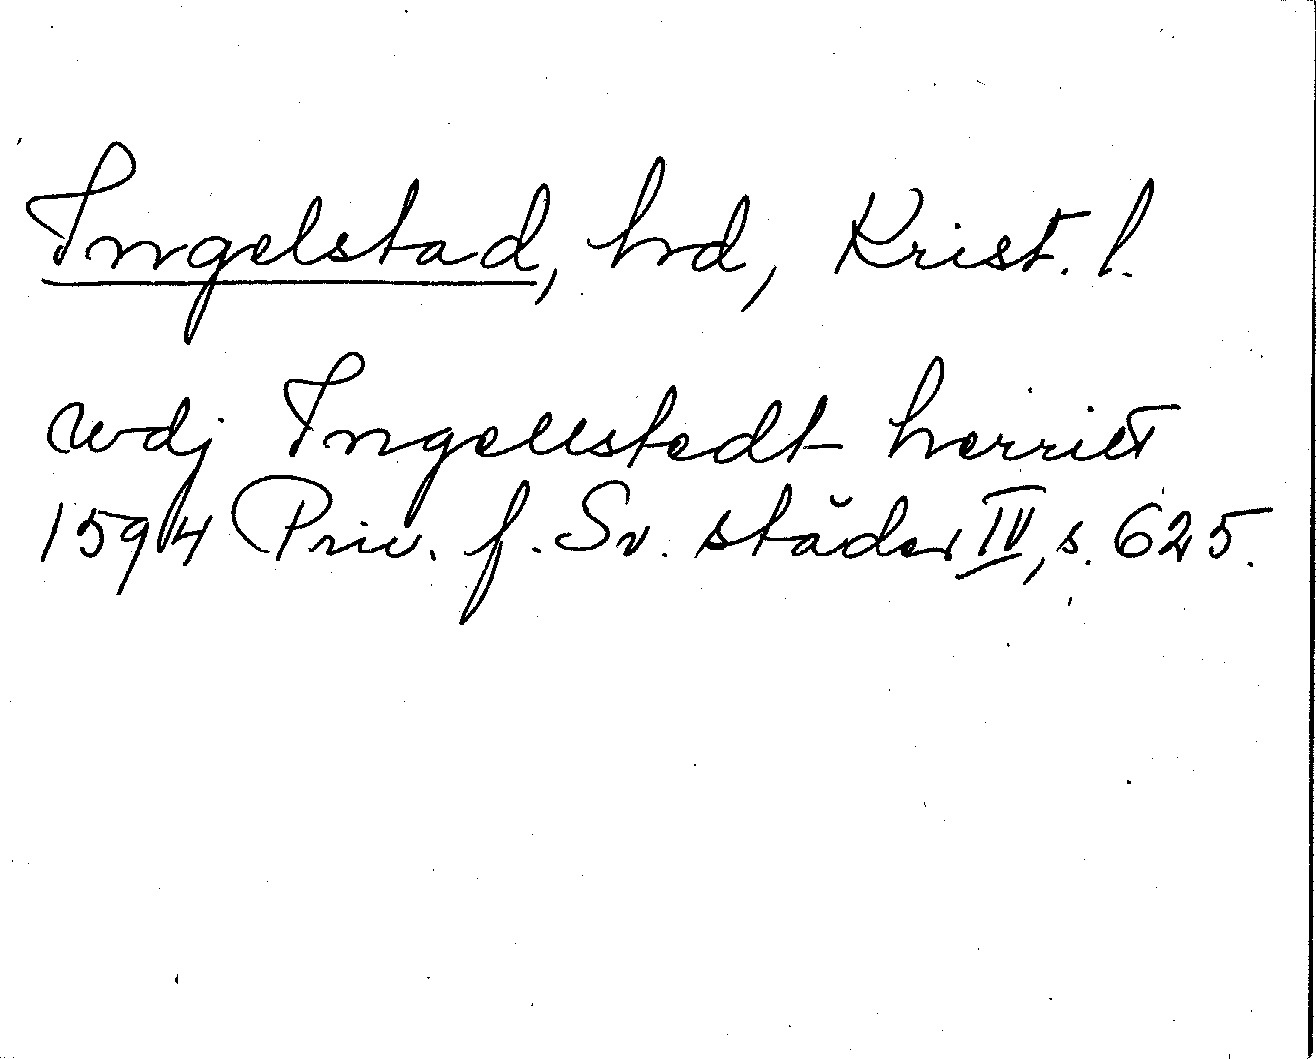 Ingelstad, hd, Krist. l.
udj Ingellstedt herritt
1594 Priv. f. Sv. städer IV, s. 625.